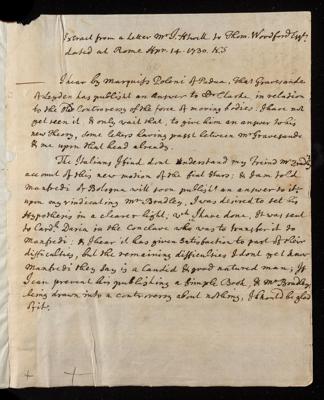 Extract from a Letter Mr. J: Atwell to Thom. Woodford Esqr.
dated at Rome Apr. 14. 1730. N.S
I hear by Marquiss Poleni of Padua, that Gravesande
of Leyden has publisht an Answer to Dr. Clarke in relation
to the Old Controversy of the force of moving bodies. I have not
yet seen it & only wait that, to give him an answer to his
new Theory, some letters having past between Mr. Gravesande
& me upon that head already.
The Italians I find dont understand my friend Mr. Bradley's
account of this new motion of the fixt stars: & I am told
Manfredi of Bologna will soon publish an answer to it:
upon my vindicating Mr. Bradley, I was desired to set his
Hypothesis in a clearer light, wch I have done. It was sent
to Cardl. Davia in the Conclave who was to transfer it to
Manfredi: & I hear it has given satisfaction to part of their
difficulties, but the remaining difficulties I dont yet know
Manfredi they say is a Candid & good natured man; If
I can prevent his publishing a Simple Book, & Mr. Bradley
being drawn into a controversy about nothing, I should be glad
of it.